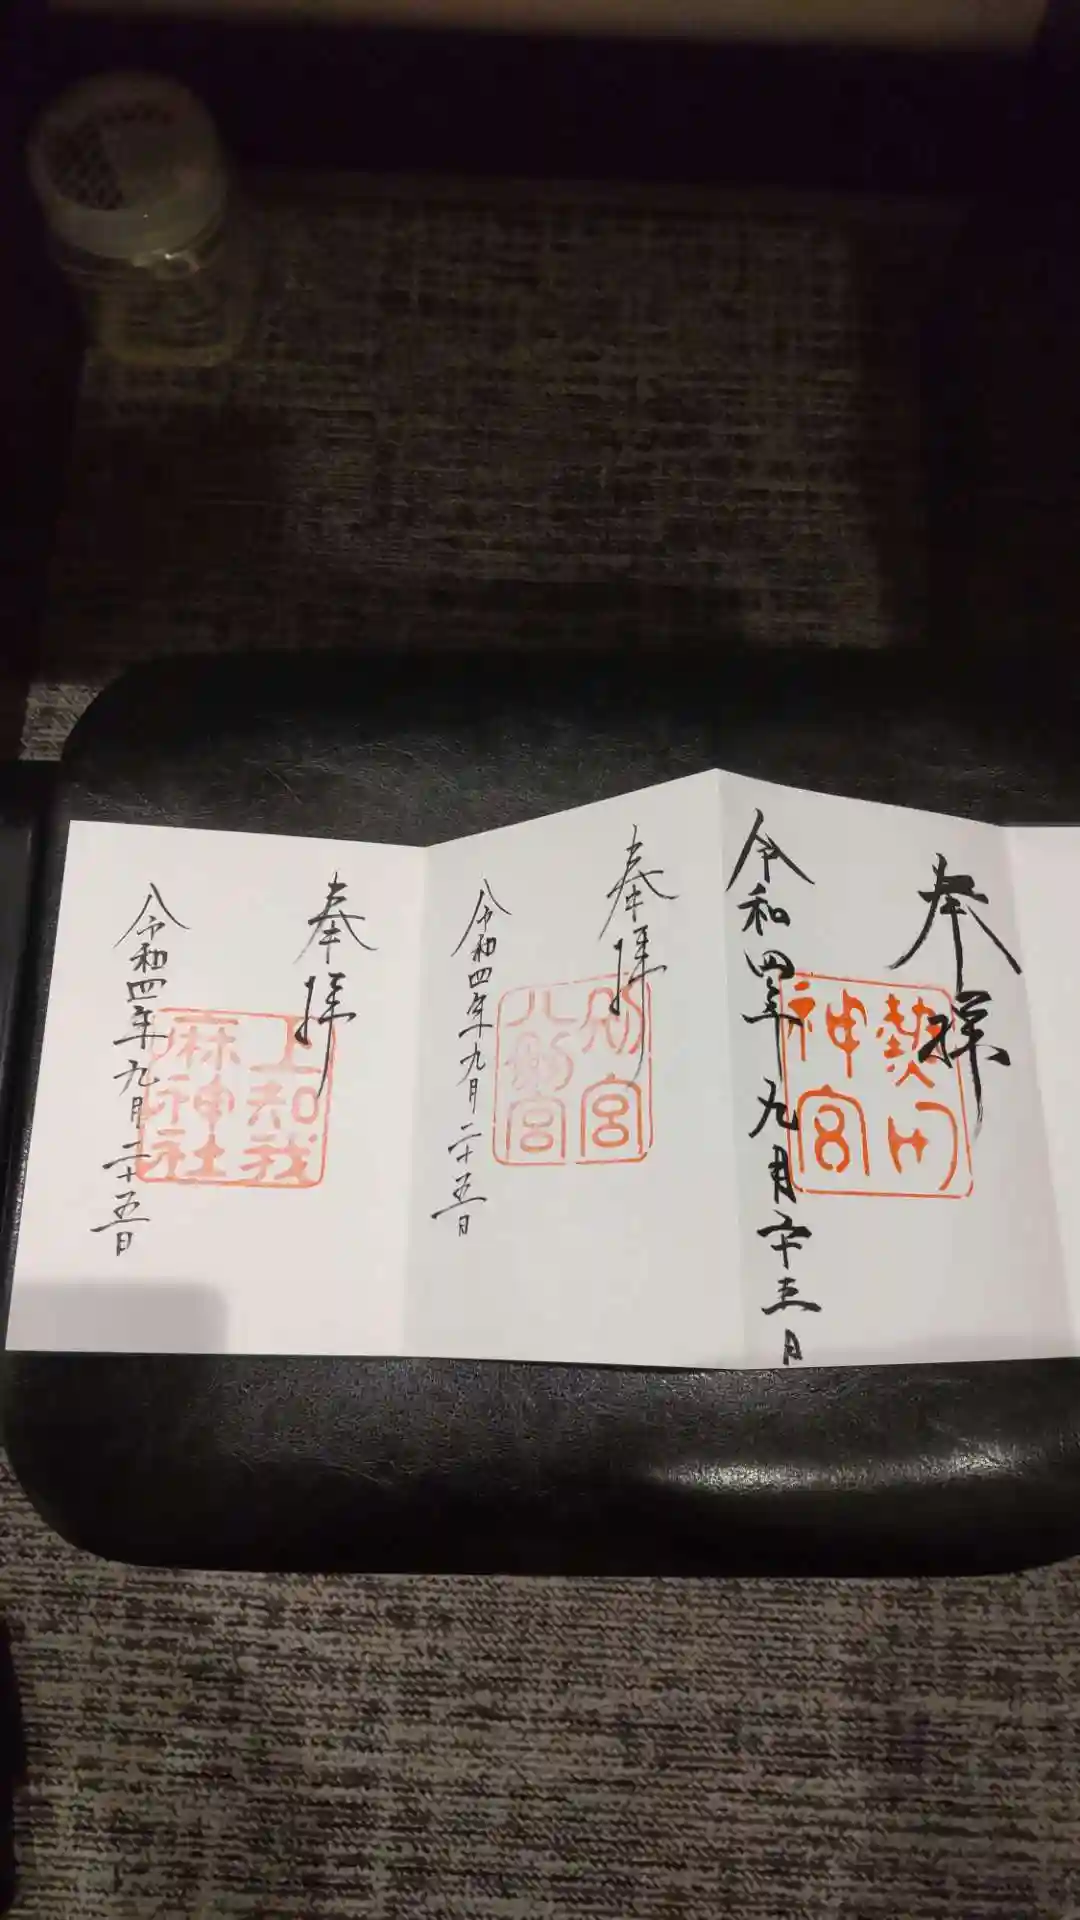 奉拝
熱田
神宮
令和四年九月二十三日
奉拝
別宮
八剣宮
令和四年九月二十五日
奉拝
上知我
麻神社
令和四年九月二十五日